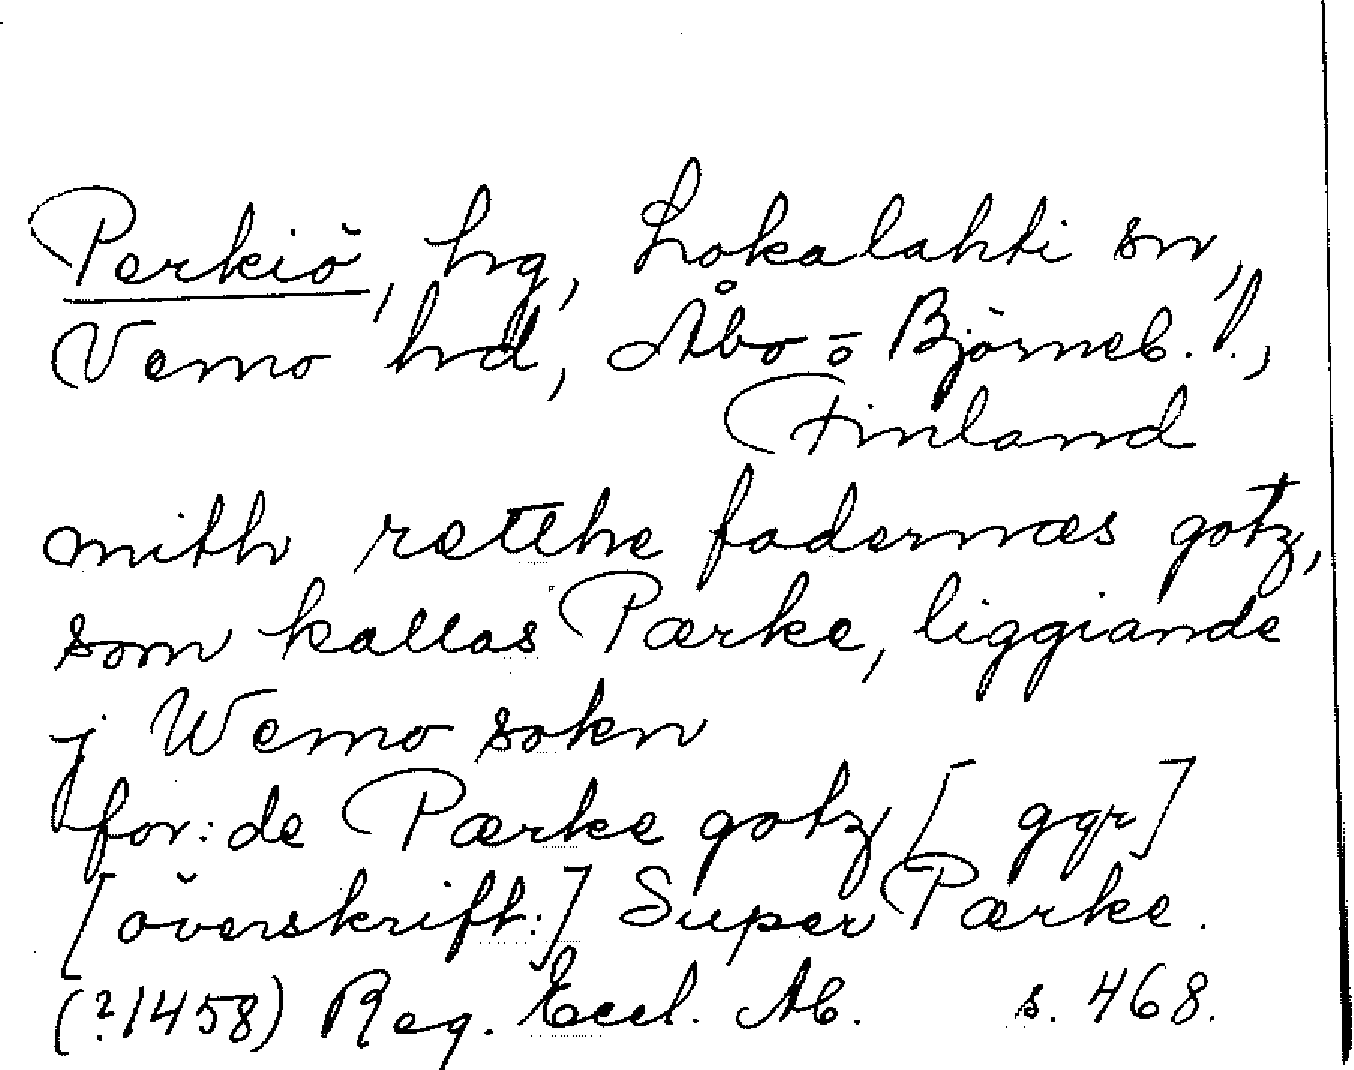 Perkiö, hg, Lokalahti sn,
Vemo hd, Åbo = o Björneb. l.,
Finland
mith rættthe fadernæs gotz,
som kallas Pærke, liggiande
j Wemo sokn
for: de Pærke gotz [ ggr]
[överskrift:] Super Pærke.
(?1458) Reg. Eccl. Ab. s. 468.